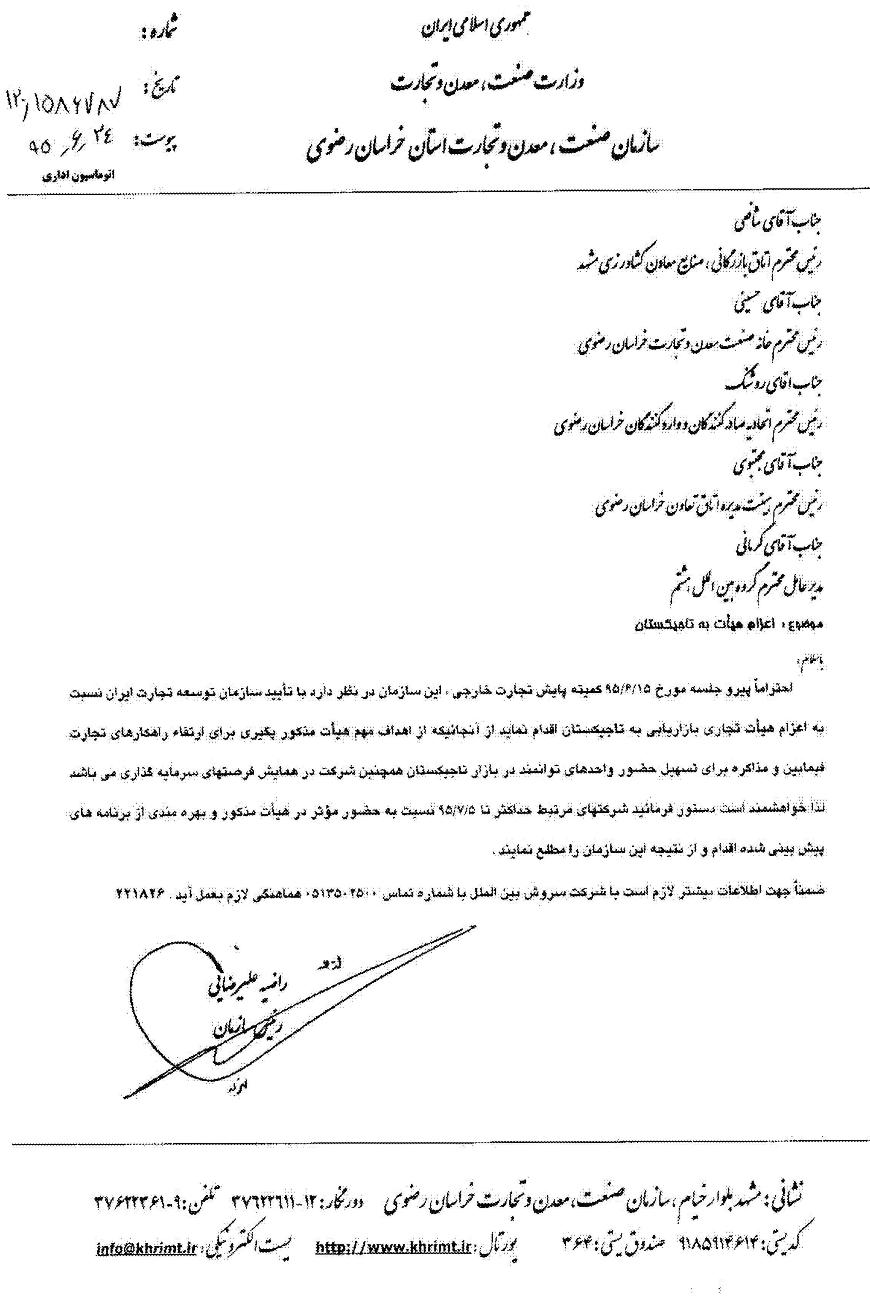 جمهوری اسلامی ایران
وزارت صنعت، معدن و تجارت
سازمان صنعت، معدن و تجارت استان خراسان رضوی
شماره:
تاریخ: ۱۲۰/۱۵۸۶۷۸۷
پیوست: ۹۵/۶/۲۴
اتوماسیون اداری
جناب آقای شافعی
رئیس محترم اتاق بازرگانی، صنایع معادن کشاورزی مشهد
جناب آقای حسینی
رئیس محترم خانه صنعت معدن و تجارت خراسان رضوی
جناب اقای روشنک
رئیس محترم اتحادیه صادرکنندگان و واردکنندگان خراسان رضوی
جناب آقای مجتبوی
رئیس محترم هیئت مدیره اتاق تعاون خراسان رضوی
جناب آقای کرمانی
مدیرعامل محترم گروه بین الملل هشتم
موضوع: اعزام هیأت به تاجیکستان
باسلام،
احتراماً پیرو جلسه مورخ ۹۵/۶/۱۵ کمیته پایش تجارت خارجی، این سازمان در نظر دارد با تأیید سازمان توسعه تجارت ایران نسبت
به اعزام هیأت تجاری بازاریابی به تاجیکستان اقدام نماید از آنجائیکه از اهداف مهم هیأت مذکور پگیری برای ارتقاء راهکارهای تجارت
فیمابین و مذاکره برای تسهیل حضور واحدهای توانمند در بازار تاجیکستان همچنین شرکت در همایش فرصتهای سرمایه گذاری می باشد
لذا خواهشمند است دستور فرمائید شرکتهای مرتبط حداکثر تا ۹۵/۷/۵ نسبت به حضور مؤثر در هیأت مذکور و بهره مندی از برنامه های
پیش بینی شده اقدام و از نتیجه این سازمان را مطلع نمایند.
ضمناً جهت اطلاعات بیشتر لازم است با شرکت سروش بین الملل با شماره تماس ۰۵۱۳۵۰۲۵۰۰ هماهنگی لازم بعمل آید. ۲۲۱۸۲۶
راضیه علیرضائی
رئیس سازمان
نشانی: مشهد بلوار خیام، سازمان صنعت، معدن و تجارت خراسان رضوی دورنگار: ۱۲-۳۷۶۲۲۶۱۱ تلفن: ۹-۳۷۶۲۲۳۶۱
کدپستی: ۹۱۸۵۹۱۴۶۱۴ صندوق پستی: ۳۶۴ پورتال: http://www.khrimt.ir پست الکترونیکی: info@khrimt.ir